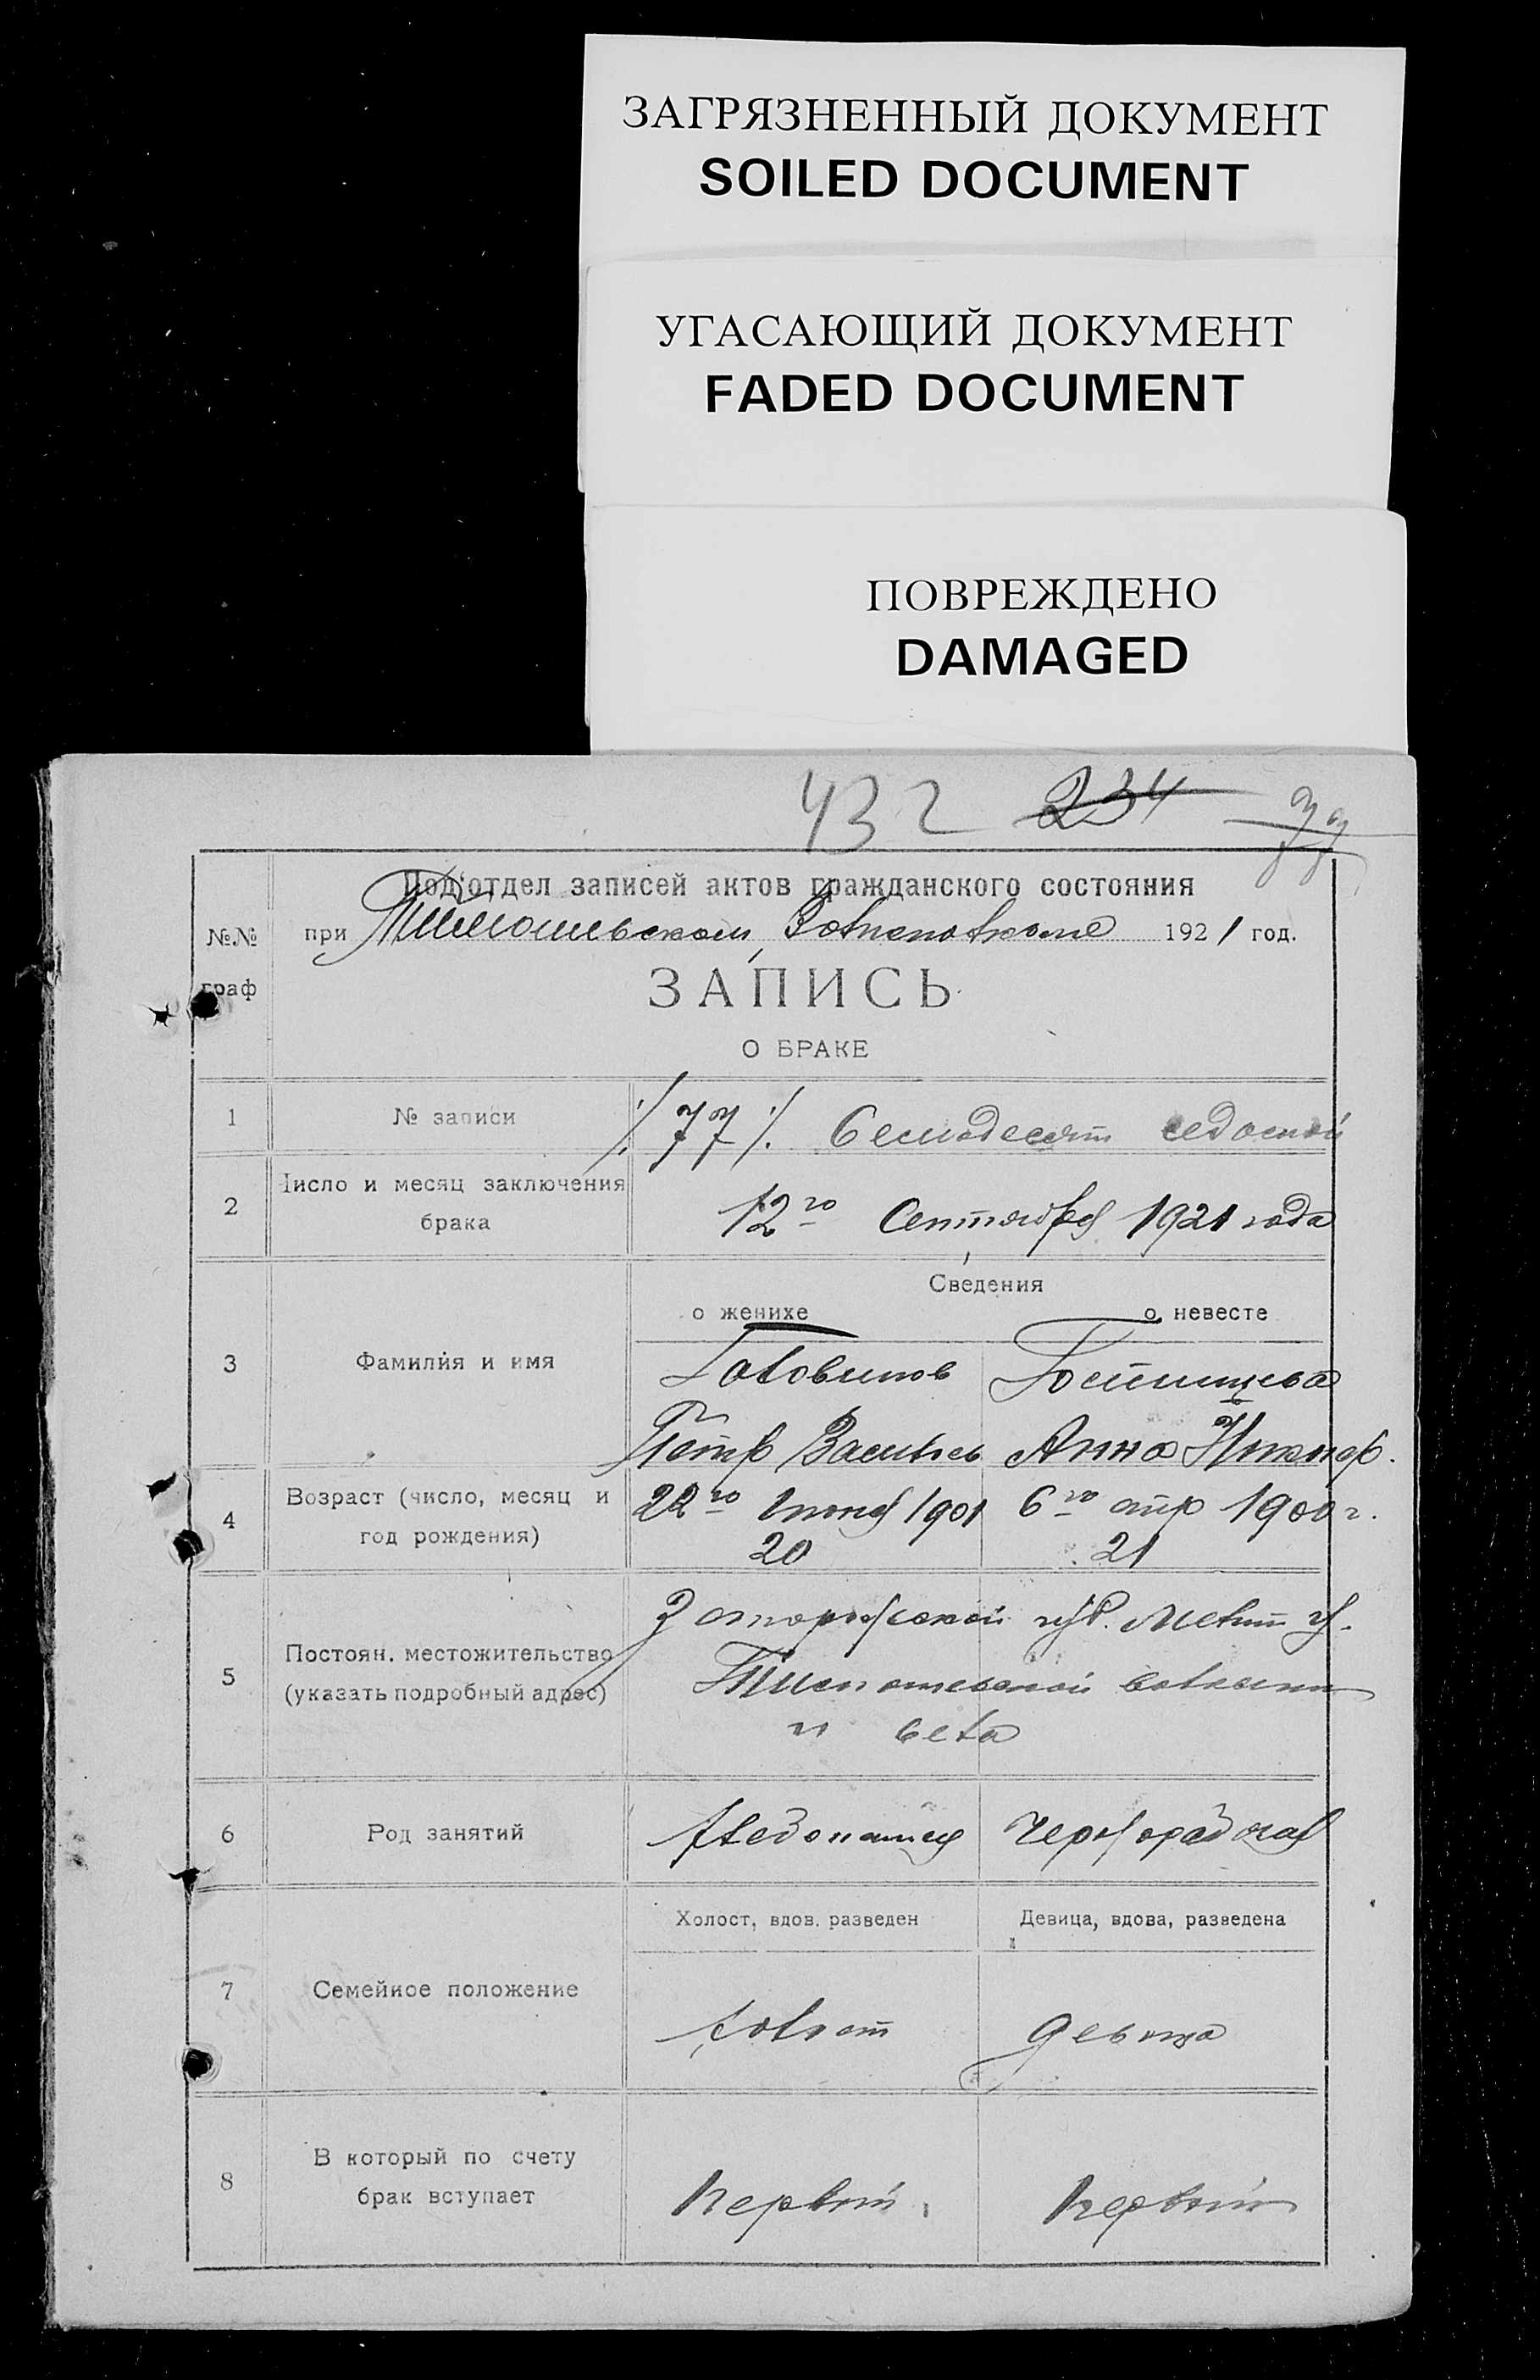 ЗАГРЯЗНЕННЫЙ ДОКУМЕНТ
SOILED DOCUMENT
УГАСАЮЩИЙ ДОКУМЕНТ
FADED DOCUMENT
ПОВРЕЖДЕНО
DAMAGED
432 234
Под'отдел записей актов гражданского состояния
№№ граф
при Тимошевском Волисполкоме 1921 год.
ЗАПИСЬ
О БРАКЕ
1 № записи ·/· 77 ·/· Семьдесят седьмой
2 Число и месяц заключения
брака 12го Сентября 1921 года
Сведения
о женихе о невесте
3 Фамилия и имя
Головинов Гостищева
Петр Васильев Анна Никанор.
4 Возраст (число, месяц и
год рождения)
22го 1901 6го апр 1900 г.
20 21
5 Постоян. местожительство
(указать подробный адрес)
Запорожской губ. Мелит у.
Тимошевской волости
и села
6 Род занятий Хлебопашец Чернорабочая
Холост, вдов. разведен Девица, вдова, разведена
7 Семейное положение
холост девица
8 В который по счету
брак вступает
первый первый